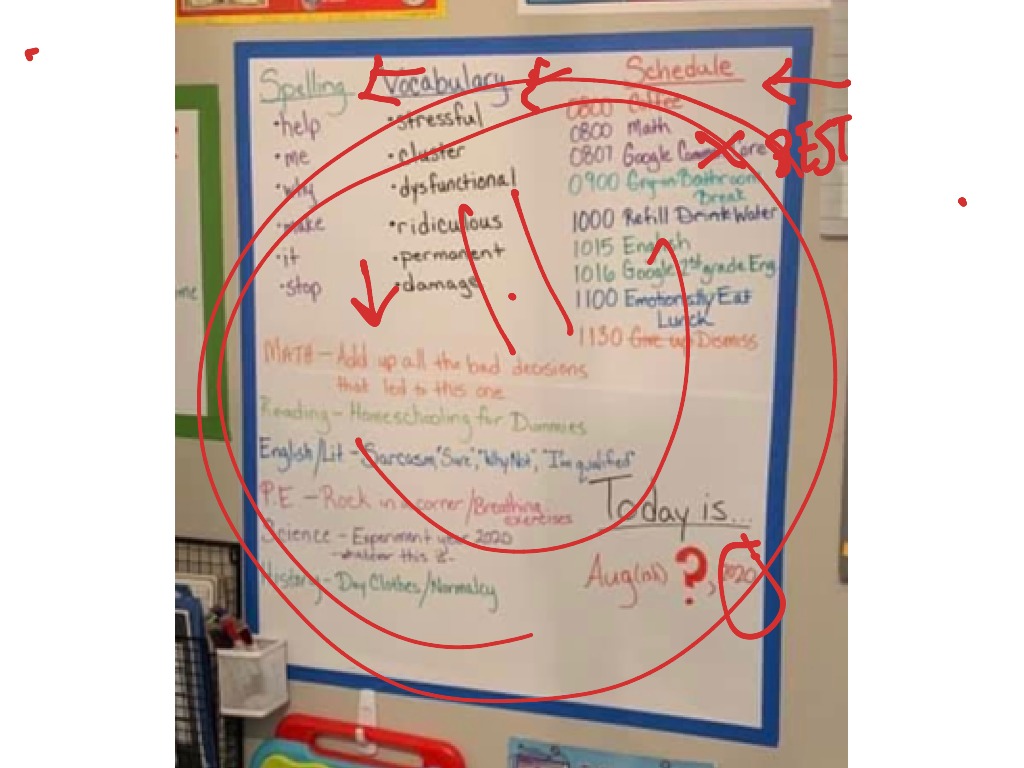 Spelling
•help
•me
•why
•make
•it
•stop
Vocabulary
•stressful
•cluster
•dysfunctional
•ridiculous
•permanent
•damage
Schedule
0800 Coffee
0800 Math
0807 Google Common Core
REST
0900 Cry in Bathroom
Break
1000 Refill Drink Water
1015 English
1016 Google 2nd grade Eng.
1100 Emotionally Eat
Lunch
1130 Give up Dismiss
MATH - Add up all the bad decisions
that led to this one
Reading - Homeschooling for Dummies
English/Lit - Sarcasm, "Sure", "Why Not", "I'm qualified"
P.E - Rock in a corner/Breathing
exercises
Science - Experiment year 2020
this
History - Day Clothes/Normalcy
Today is...
Aug(ish) ?, 2020
me